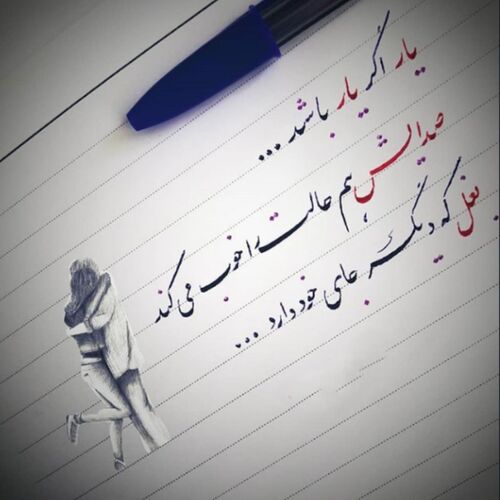 یار اگر یار باشد ...
صدایش هم حالت را خوب می کند
بغل که دیگر جای خود دارد ...